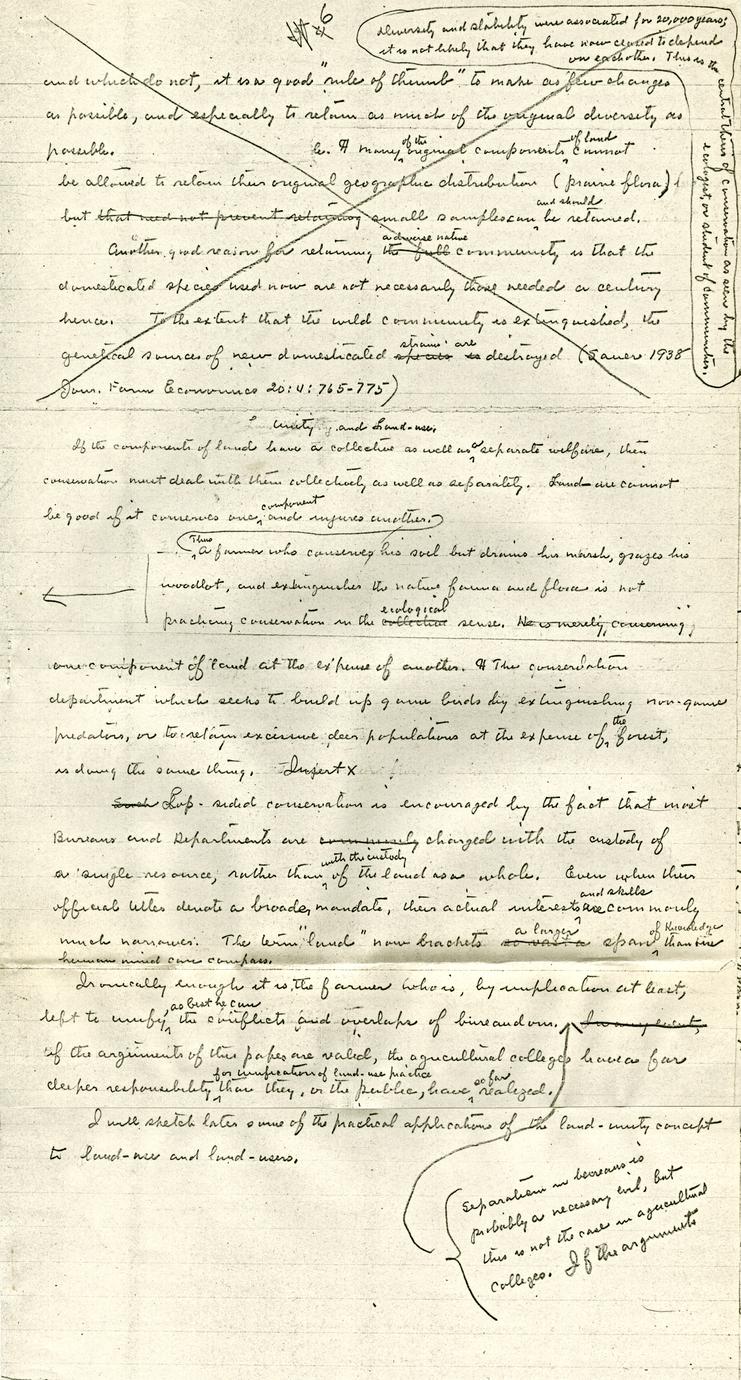 6
Diversity and stability were associated for 20,000 years;
it is not likely that they have now ceased to depend
on each other. This is the
central thesis of conservation as seen by the
ecologist, or student of communities.
and which do not, it is a good "rule of thumb" to make as few changes
as possible, and especially to retain as much of the original diversity as
possible. many of the original components of land cannot
be allowed to retain their original geographic distribution (prairie flora)
but that need not prevent retaining small samples can and should be retained.
Another good reason for retaining the full a diverse native community is that the
domesticated species used now are not necessarily those needed a century
hence. To the extent that the wild community is extinguished, the
genetical sources of new domesticated species is strains are destroyed (Sauer 1938
Jour. Farm Economics 20:4:765-775)
Unity and Land-use.
If the components of land have a collective as well as a separate welfare, then
conservation must deal with them collectively as well as separately. Land-use cannot
be good if it conserves one component and injures another.
Thus a farmer who conserves his soil but drains his marsh, grazes his
woodlot, and extinguishes the native fauna and flora is not
practicing conservation in the collective ecological sense. He is merely conserving
one component of land at the expense of another. The conservation
department which seeks to build up game birds by extinguishing non-game
predators, or to retain excessive deer populations at the expense of the forest,
is doing the same thing. Insert X
Such Lop-sided conservation is encouraged by the fact that most
Bureaus and Departments are commonly charged with the custody of
a single resource, rather than with the custody of the land as a whole. Even when their
official titles denote a broader mandate, their actual interests and skills are commonly
much narrower. The term "land" now brackets so vast a a larger span of knowledge than one
human mind can compass.
Ironically enough it is the farmer who is, by implication at least,
left to unify as best he can the conflicts and overlaps of bureaudom. In any event,
if the arguments of this paper are valid, the agricultural colleges have a far
deeper responsibility for unification of land-use practice than they, or the public, have so far realized.
I will sketch later some of the practical applications of the land-unity concept
to land-use and land-users.
Separation in bureaus is
probably a necessary evil, but
this is not the case in agricultural
colleges. If the arguments